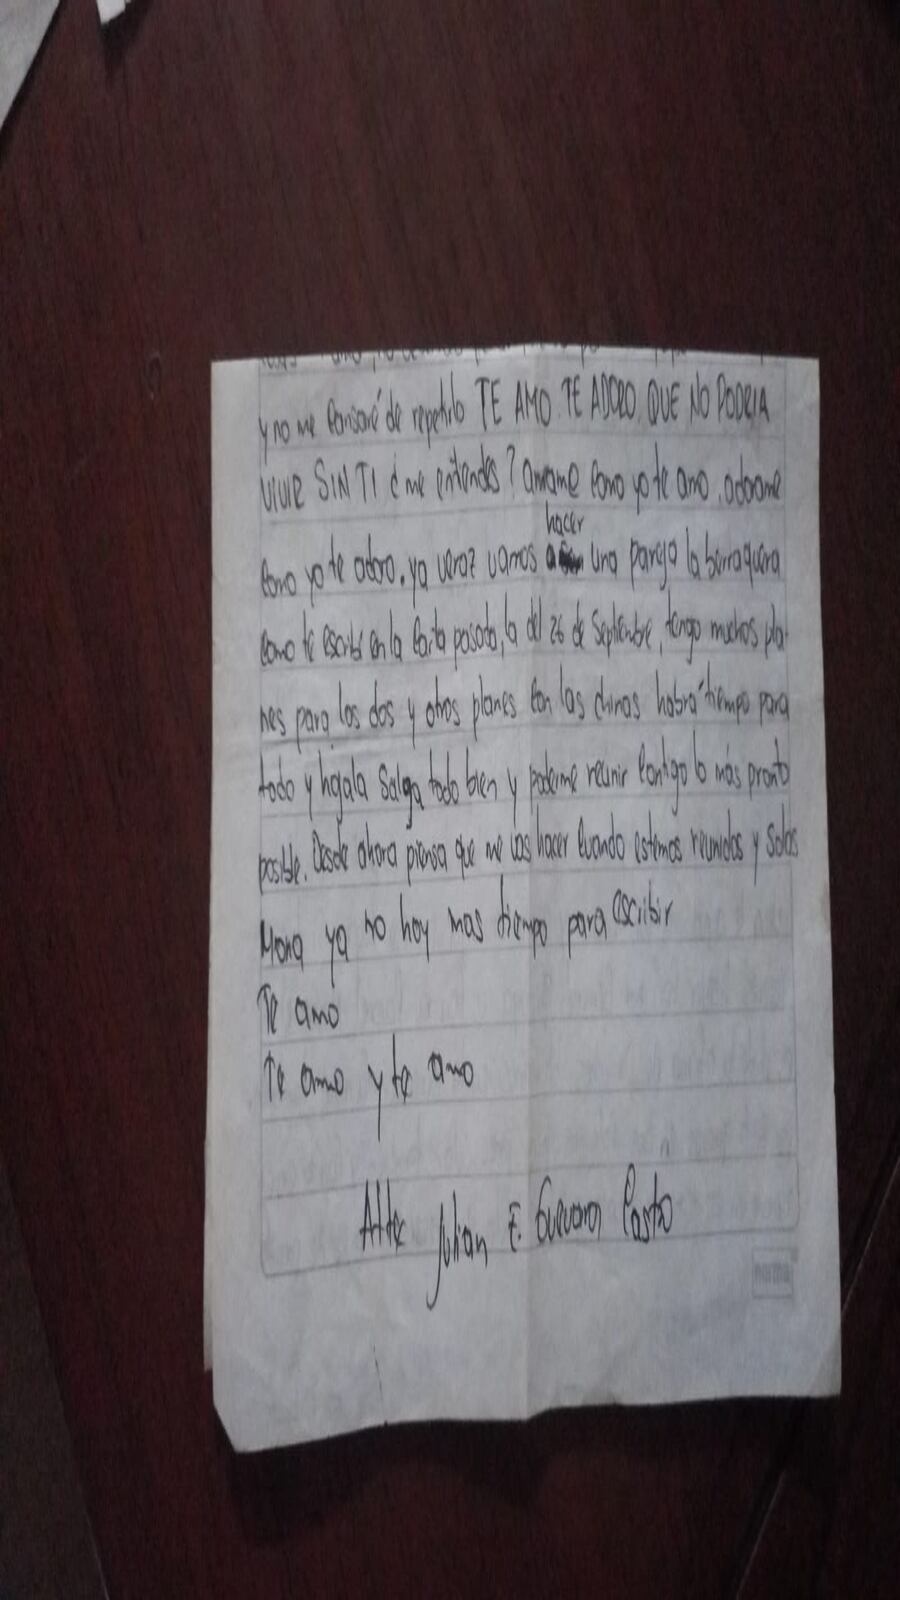 y no me cansaré de repetirlo TE AMO. TE ADORO. QUE NO PODRIA
VIVIR SIN TI ¿me entendes? amame como yo te amo, adorame
hacer
como yo te adoro, ya veraz vamos a una pareja la berraquera
como te escribí en la carta pasada, la del 26 de Septiembre, tengo muchos pla-
nes para los dos y otros planes con las chinas habrá tiempo para
todo y ojala salga todo bien y poderme reunir contigo lo más pronto
posible. Desde ahora piensa que me vas hacer cuando estemos reunidos y solos
Mona ya no hay mas tiempo para escribir
Te amo
Te amo y te amo
Atte Julian E Guevara Castro
norma